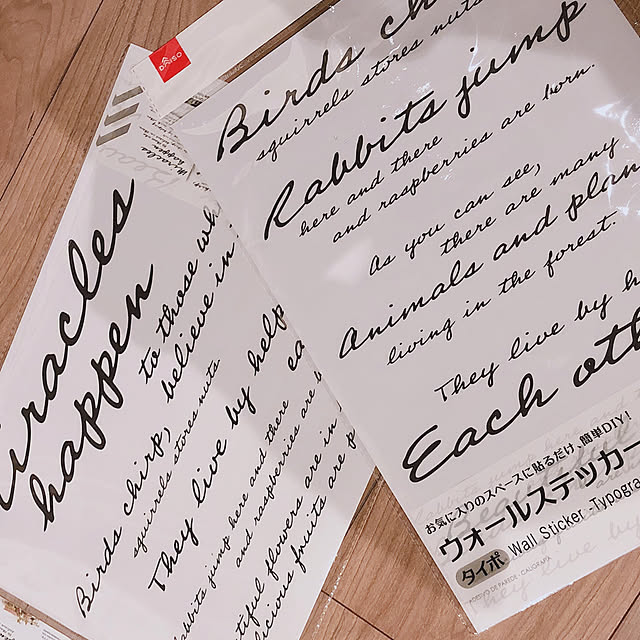 DAISO
Birds ch
squirrels stores nuts
Rabbits jump
here and there
and raspberries are born.
As you can see,
there are many
Animals and plan
living in the forest.
They live by h
Each oth
お気に入りのスペースに貼るだけ 簡単DIY!
ウォールステッカー
タイポ Wall Sticker・Typogra
ADESIVO DE PAREDE・CALIGRAFIA
iracles
happen
to those wh
believe in
Birds chirp,
squirrels stores nuts
They live by help
ea
abbits jump here and there
and raspberries are b
tiful flowers are in
licious fruits are p